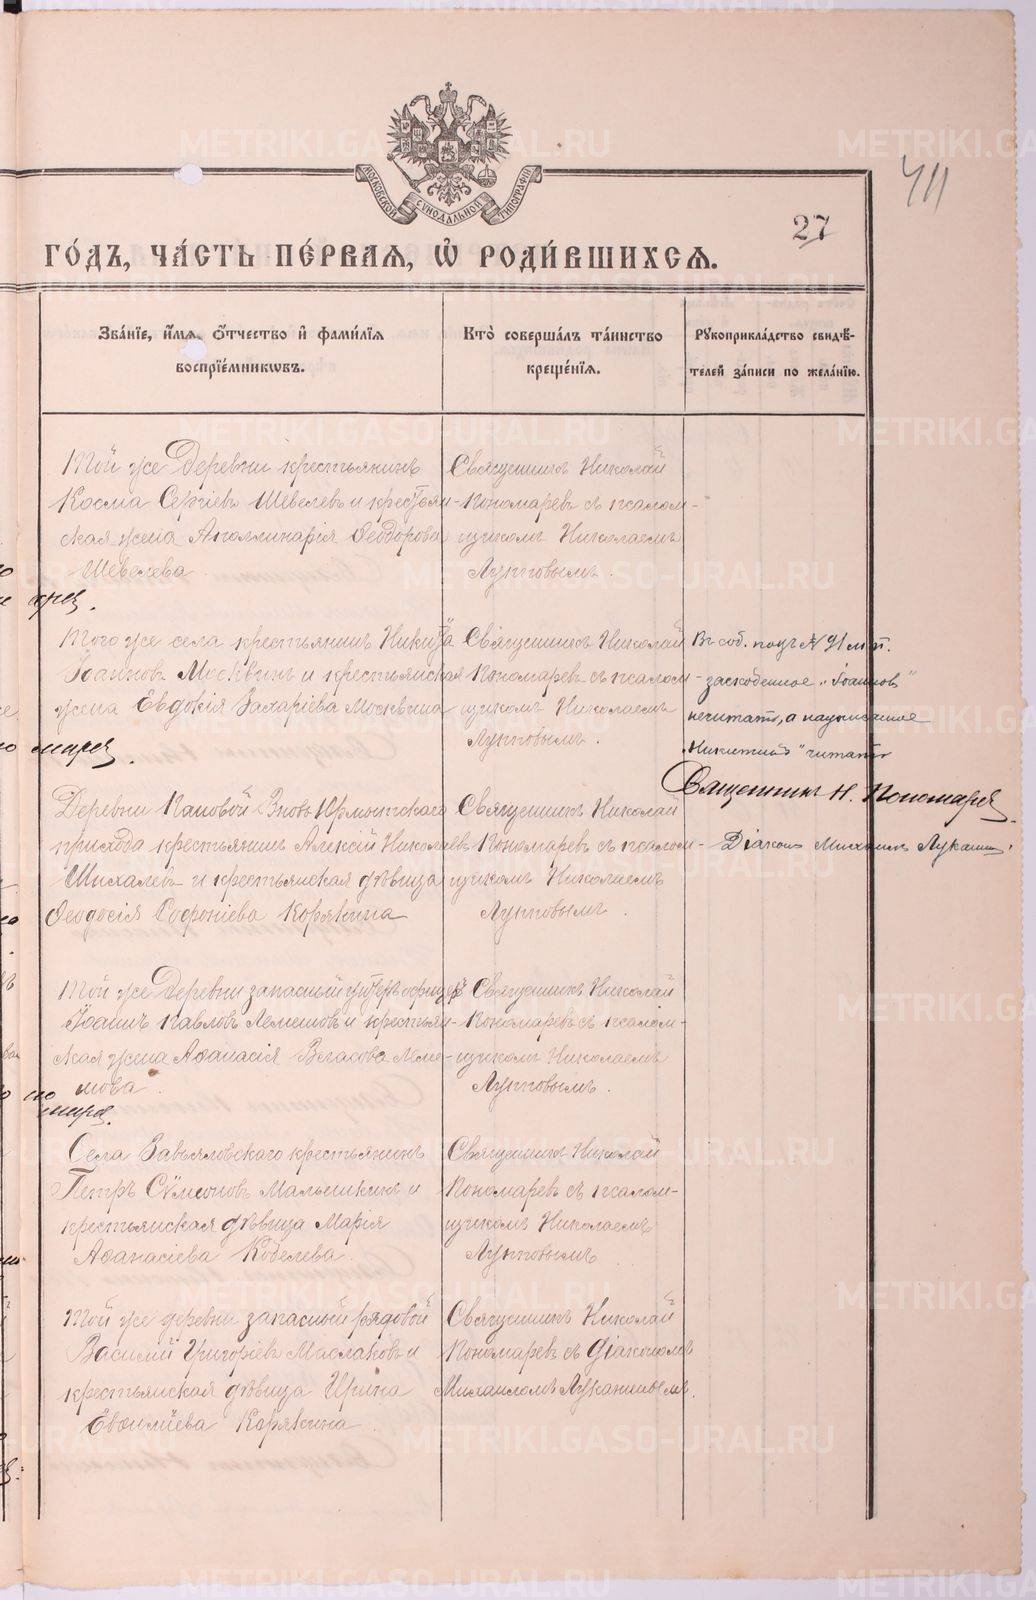 МОСКОВСКОЙ СѴНОДАЛЬНОЙ ТИПОГРАФІИ
411
27
ГО́ДЪ, ЧА́СТЬ ПЕ́РВАѦ, Ѡ҆ РОДИ́ВШИХСѦ.
Зва́нїе, и҆́мѧ, ѻ҆́тчество и҆ фами́лїѧ
воспрїе́мникѡвъ.
Кто̀ соверша́лъ та́инство
креще́нїѧ.
Рꙋкоприкла́дство свидѣ́-
телей за́писи по жела́нїю.
Той же Деревни крестьянинъ
Косма Сергіевъ Шевелевъ и крестьян-
ская жена Аполлинарія Ѳеодорова
Шевелева
Священникъ Николай
Пономаревъ съ псалом-
щикомъ Николаемъ
Луптовымъ.
Того же села крестьянинъ Никита
Іоанновъ Москвинъ и крестьянская
жена Евдокія Захаріева Москвина
Священникъ Николай
Пономаревъ съ псалом-
щикомъ Николаемъ
Луптовымъ.
"Іоанновъ"
не читать, а надписанное
читать
Священникъ Н. Пономарев
Діаконъ Михаилъ Лукании
Деревни
прихода крестьянинъ Алексій Николаевъ
Михалевъ и крестьянская дѣвица
Ѳеодосія Софроніева Корякина
Священникъ Николай
Пономаревъ съ псалом-
щикомъ Николаемъ
Луптовымъ.
Той же Деревни запасный унтеръ офицеръ
Іоаннъ Павловъ Лемешовъ и крестьян-
ская жена Аѳанасія
мова
Священникъ Николай
Пономаревъ съ псалом-
щикомъ Николаемъ
Луптовымъ.
Села Завьяловскаго крестьянинъ
Петръ Сѵмеоновъ Малышкинъ и
крестьянская дѣвица Марія
Аѳанасіева Кобелева.
Священникъ Николай
Пономаревъ съ псалом-
щикомъ Николаемъ
Луптовымъ.
Той же деревни запасный рядовой
Василій Григоріевъ Маслаковъ и
крестьянская дѣвица Ирина
Евѳиміева Корякина
Священникъ Николай
Пономаревъ съ діакономъ
Михаиломъ Луканинымъ.
METRIKI.GASO-URAL.RU